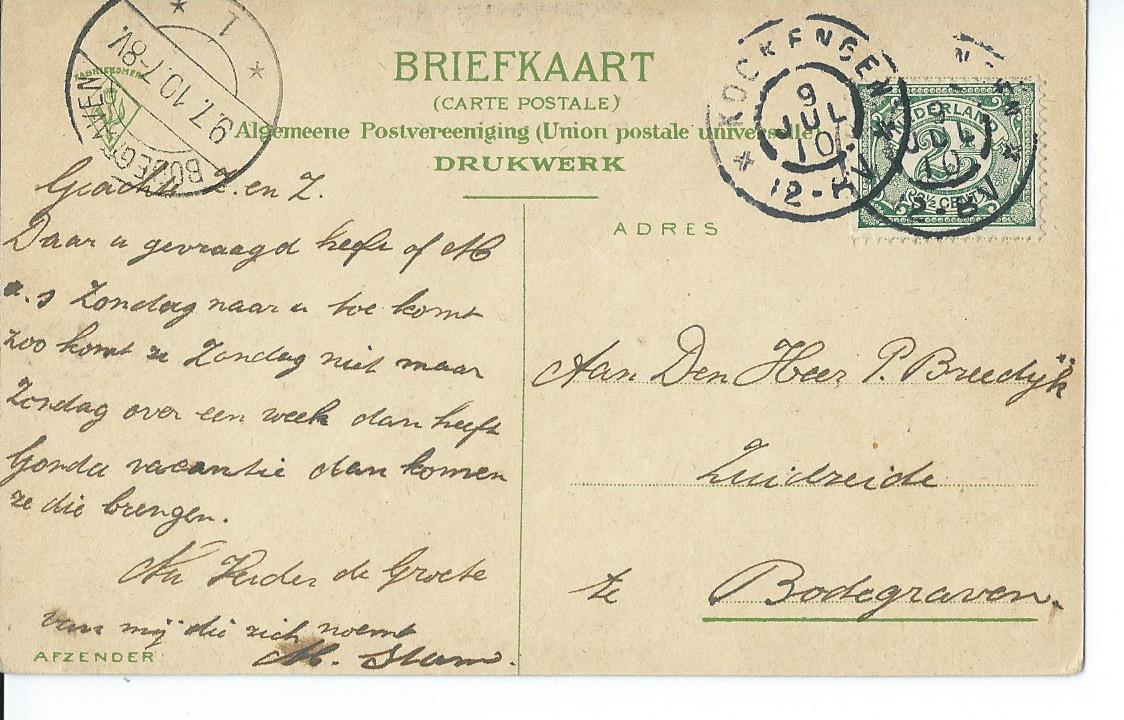 BRIEFKAART
(CARTE POSTALE)
Algemeene Postvereeniging (Union postale universelle)
DRUKWERK
FABRIEKSMERK
BODEGRAVEN
9.7.10.7-8V.
1
KOCKENGEN
9
JUL
10
12-1N
NEDERLAND
2½
2½ CENT
Geachte Z. en Z.
Daar u gevraagd heeft of M
a.s Zondag naar u toe komt
zoo komt ze Zondag niet maar
Zondag over een week dan heeft
Gonda vacantie dan komen
ze die brengen.
Nu Verder de Groete
van mij die zich noemt
M. Stam.
AFZENDER
ADRES
Aan Den Heer P. Breedijk
Zuidzeide
te Bodegraven.